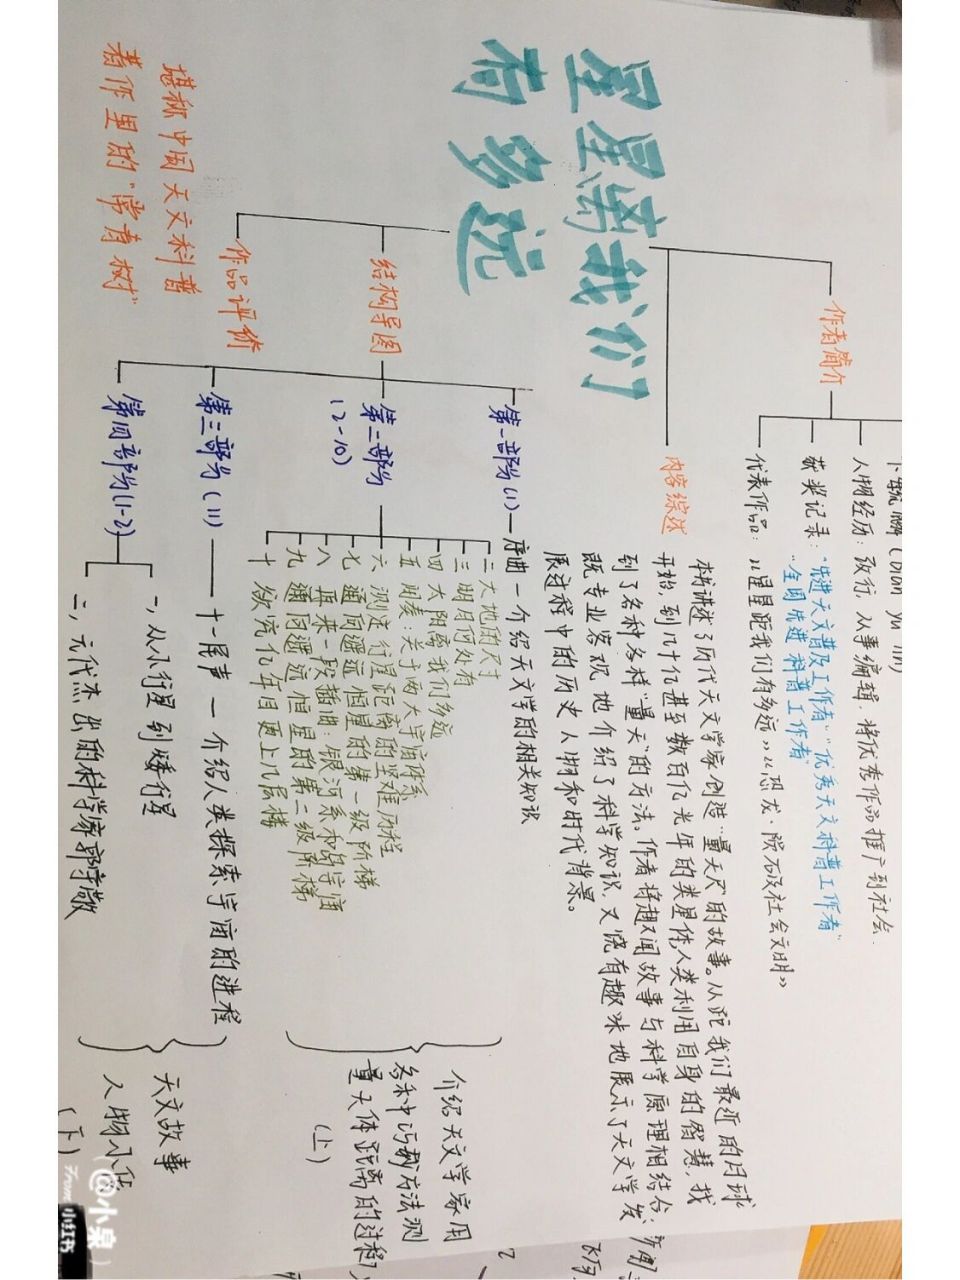 星星离我们
有多远
作者简介
卞毓麟(biàn yù lín)
人物经历：改行，从事编辑，将优秀作品推广到社会.
获奖记录："先进天文普及工作者""优秀天文科普工作者"
"全国先进科普工作者"
代表作品：《星星距我们有多远》《恐龙·陨石及社会文明》
内容综述
本书讲述了历代天文学家创造"量天尺"的故事。从距我们最近的月球
开始，到几十亿甚至数百亿光年的类星体，人类利用自身的智慧，找
到了各种各样"量天"的方法。作者将趣闻故事与科学原理相结合；
既专业客观地介绍了科学知识，又饶有趣味地展示了天文学发
展过程中的历史人物和时代背景。
结构导图
第一部分(1)—序曲—介绍天文学的相关知识
第二部分
(2-10)
二 大地的尺寸
三 明月何处有
四 太阳离我们多远
五 间奏：关于两大宇宙体系
六 测定行星距离的艰难历程
七 通向遥远恒星的第一级阶梯
八 再来一段插曲：银河系和岛宇宙
九 通向遥远恒星的第二级阶梯
十 欲穷亿年目更上几层楼
介绍天文学家用
各种巧妙方法测
量天体距离的过程
(上)
第三部分(11)—十一尾声—介绍人类探索宇宙的进程
第四部分(1-2)
一，从小行星到矮行星
二，元代杰出的科学家郭守敬
天文故事
人物小传
(下)
作品评价
堪称中国天文科普
著作里的"常青树"
@小泉
From 小红书